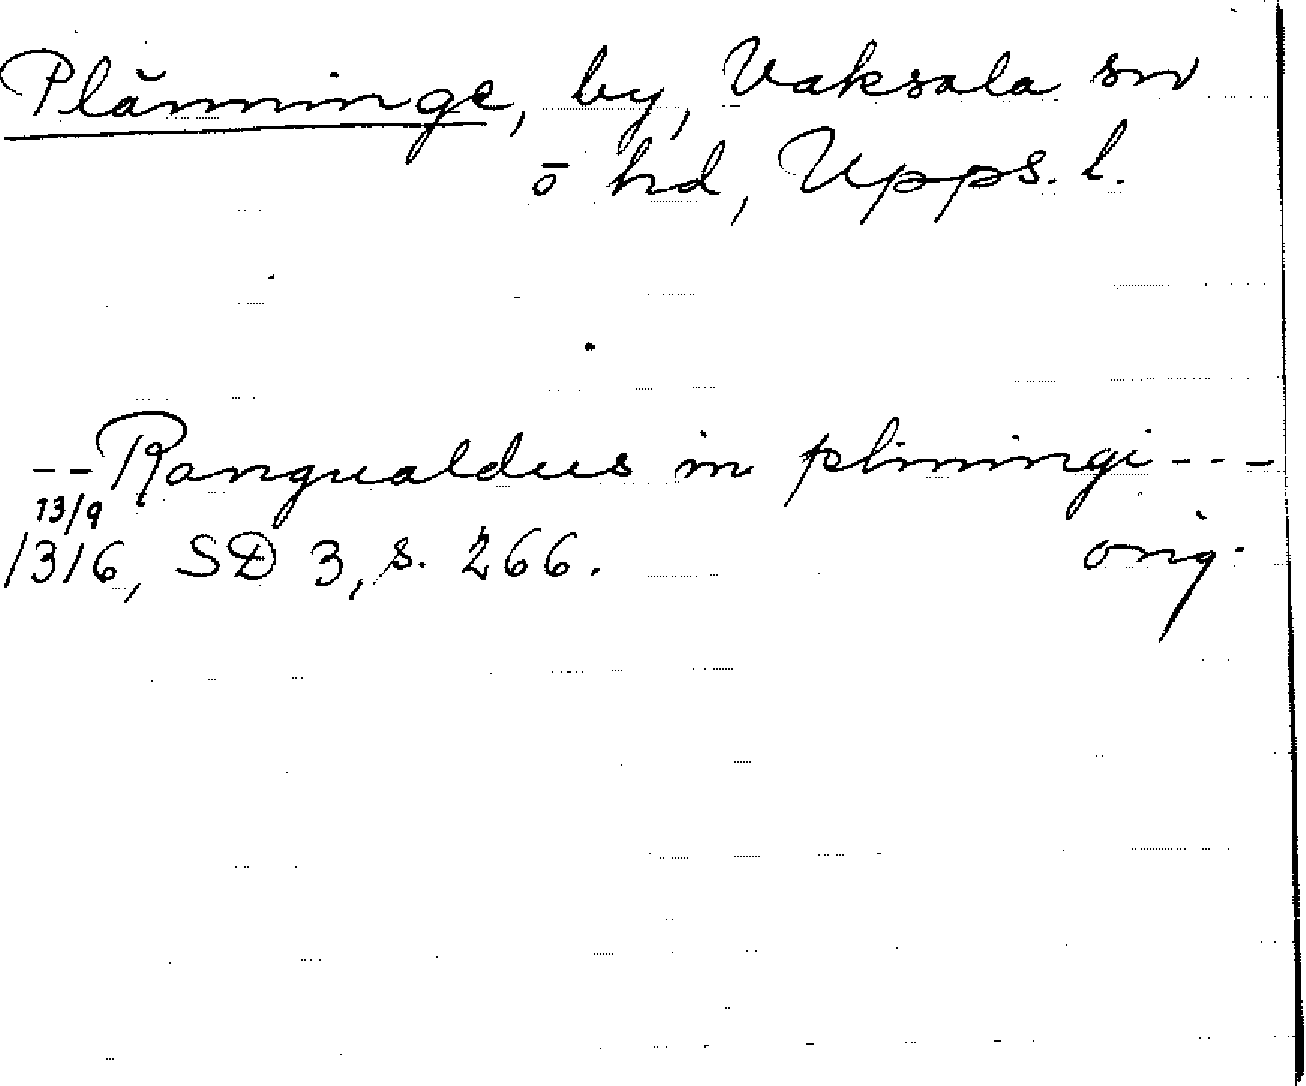 Plänninge, by, Vaksala sn
o hd, Upps. l.
-- Rangualdus in pliningi ---
13/9
1316, SD 3, s. 266. orig.